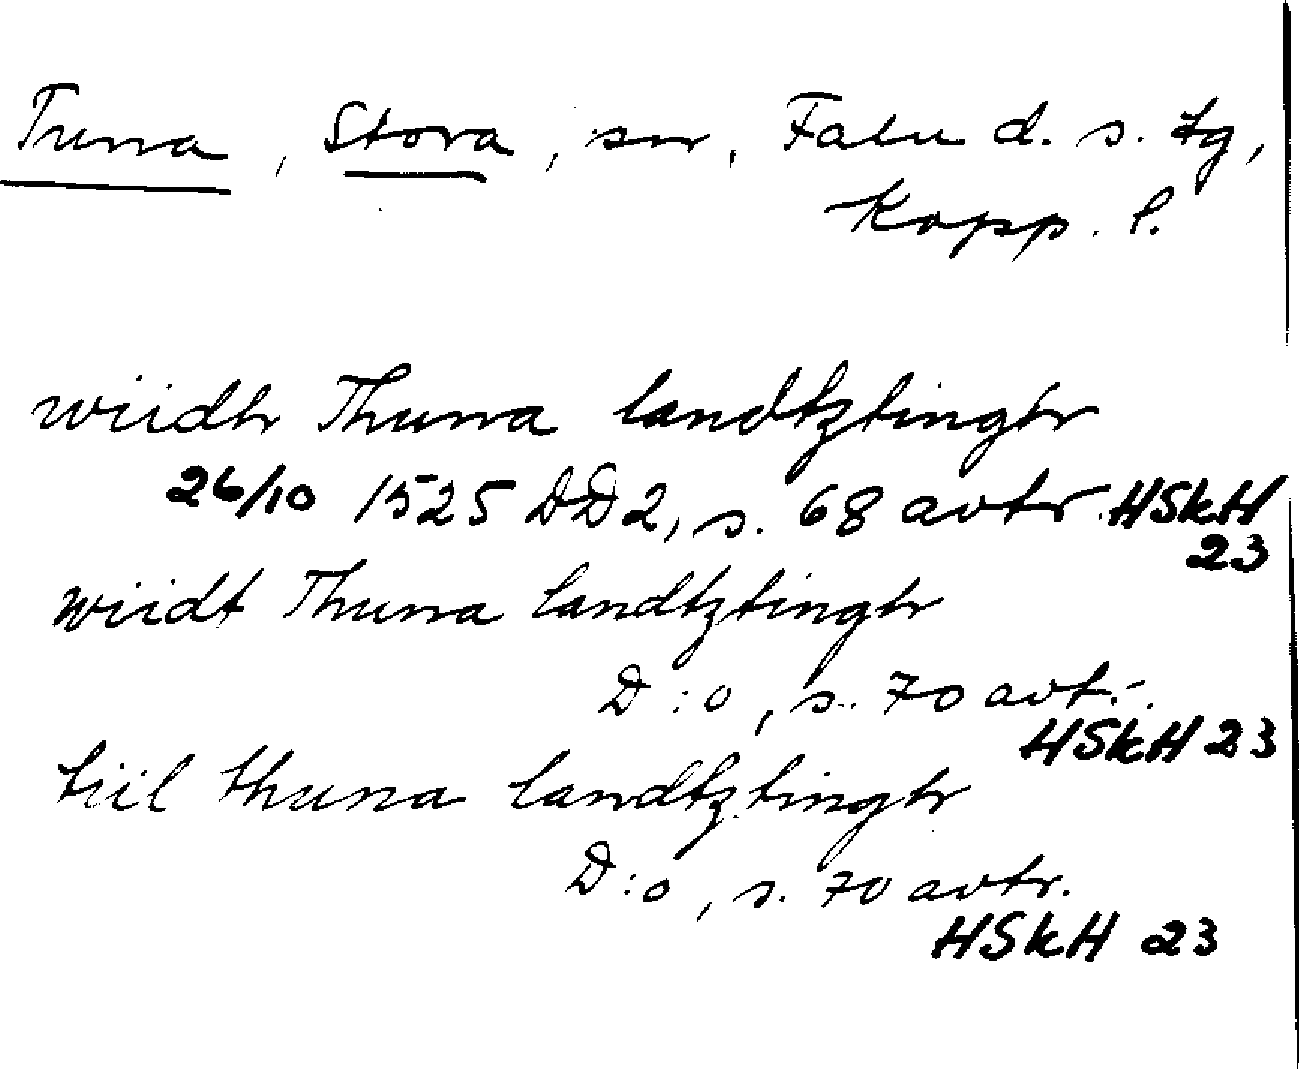 Tuna, Stora, sn, Falu d. s. tg,
Kopp. l.
wiidh Thuna landtztingh
26/10 1525 DD2, s. 68 avtr. HSkH
23
wiidt Thuna landtztingh
D:o, s. 70 avt.-.
HSkH 23
tiil thuna landtztingh
D:o, s. 70 avtr.
HSkH 23